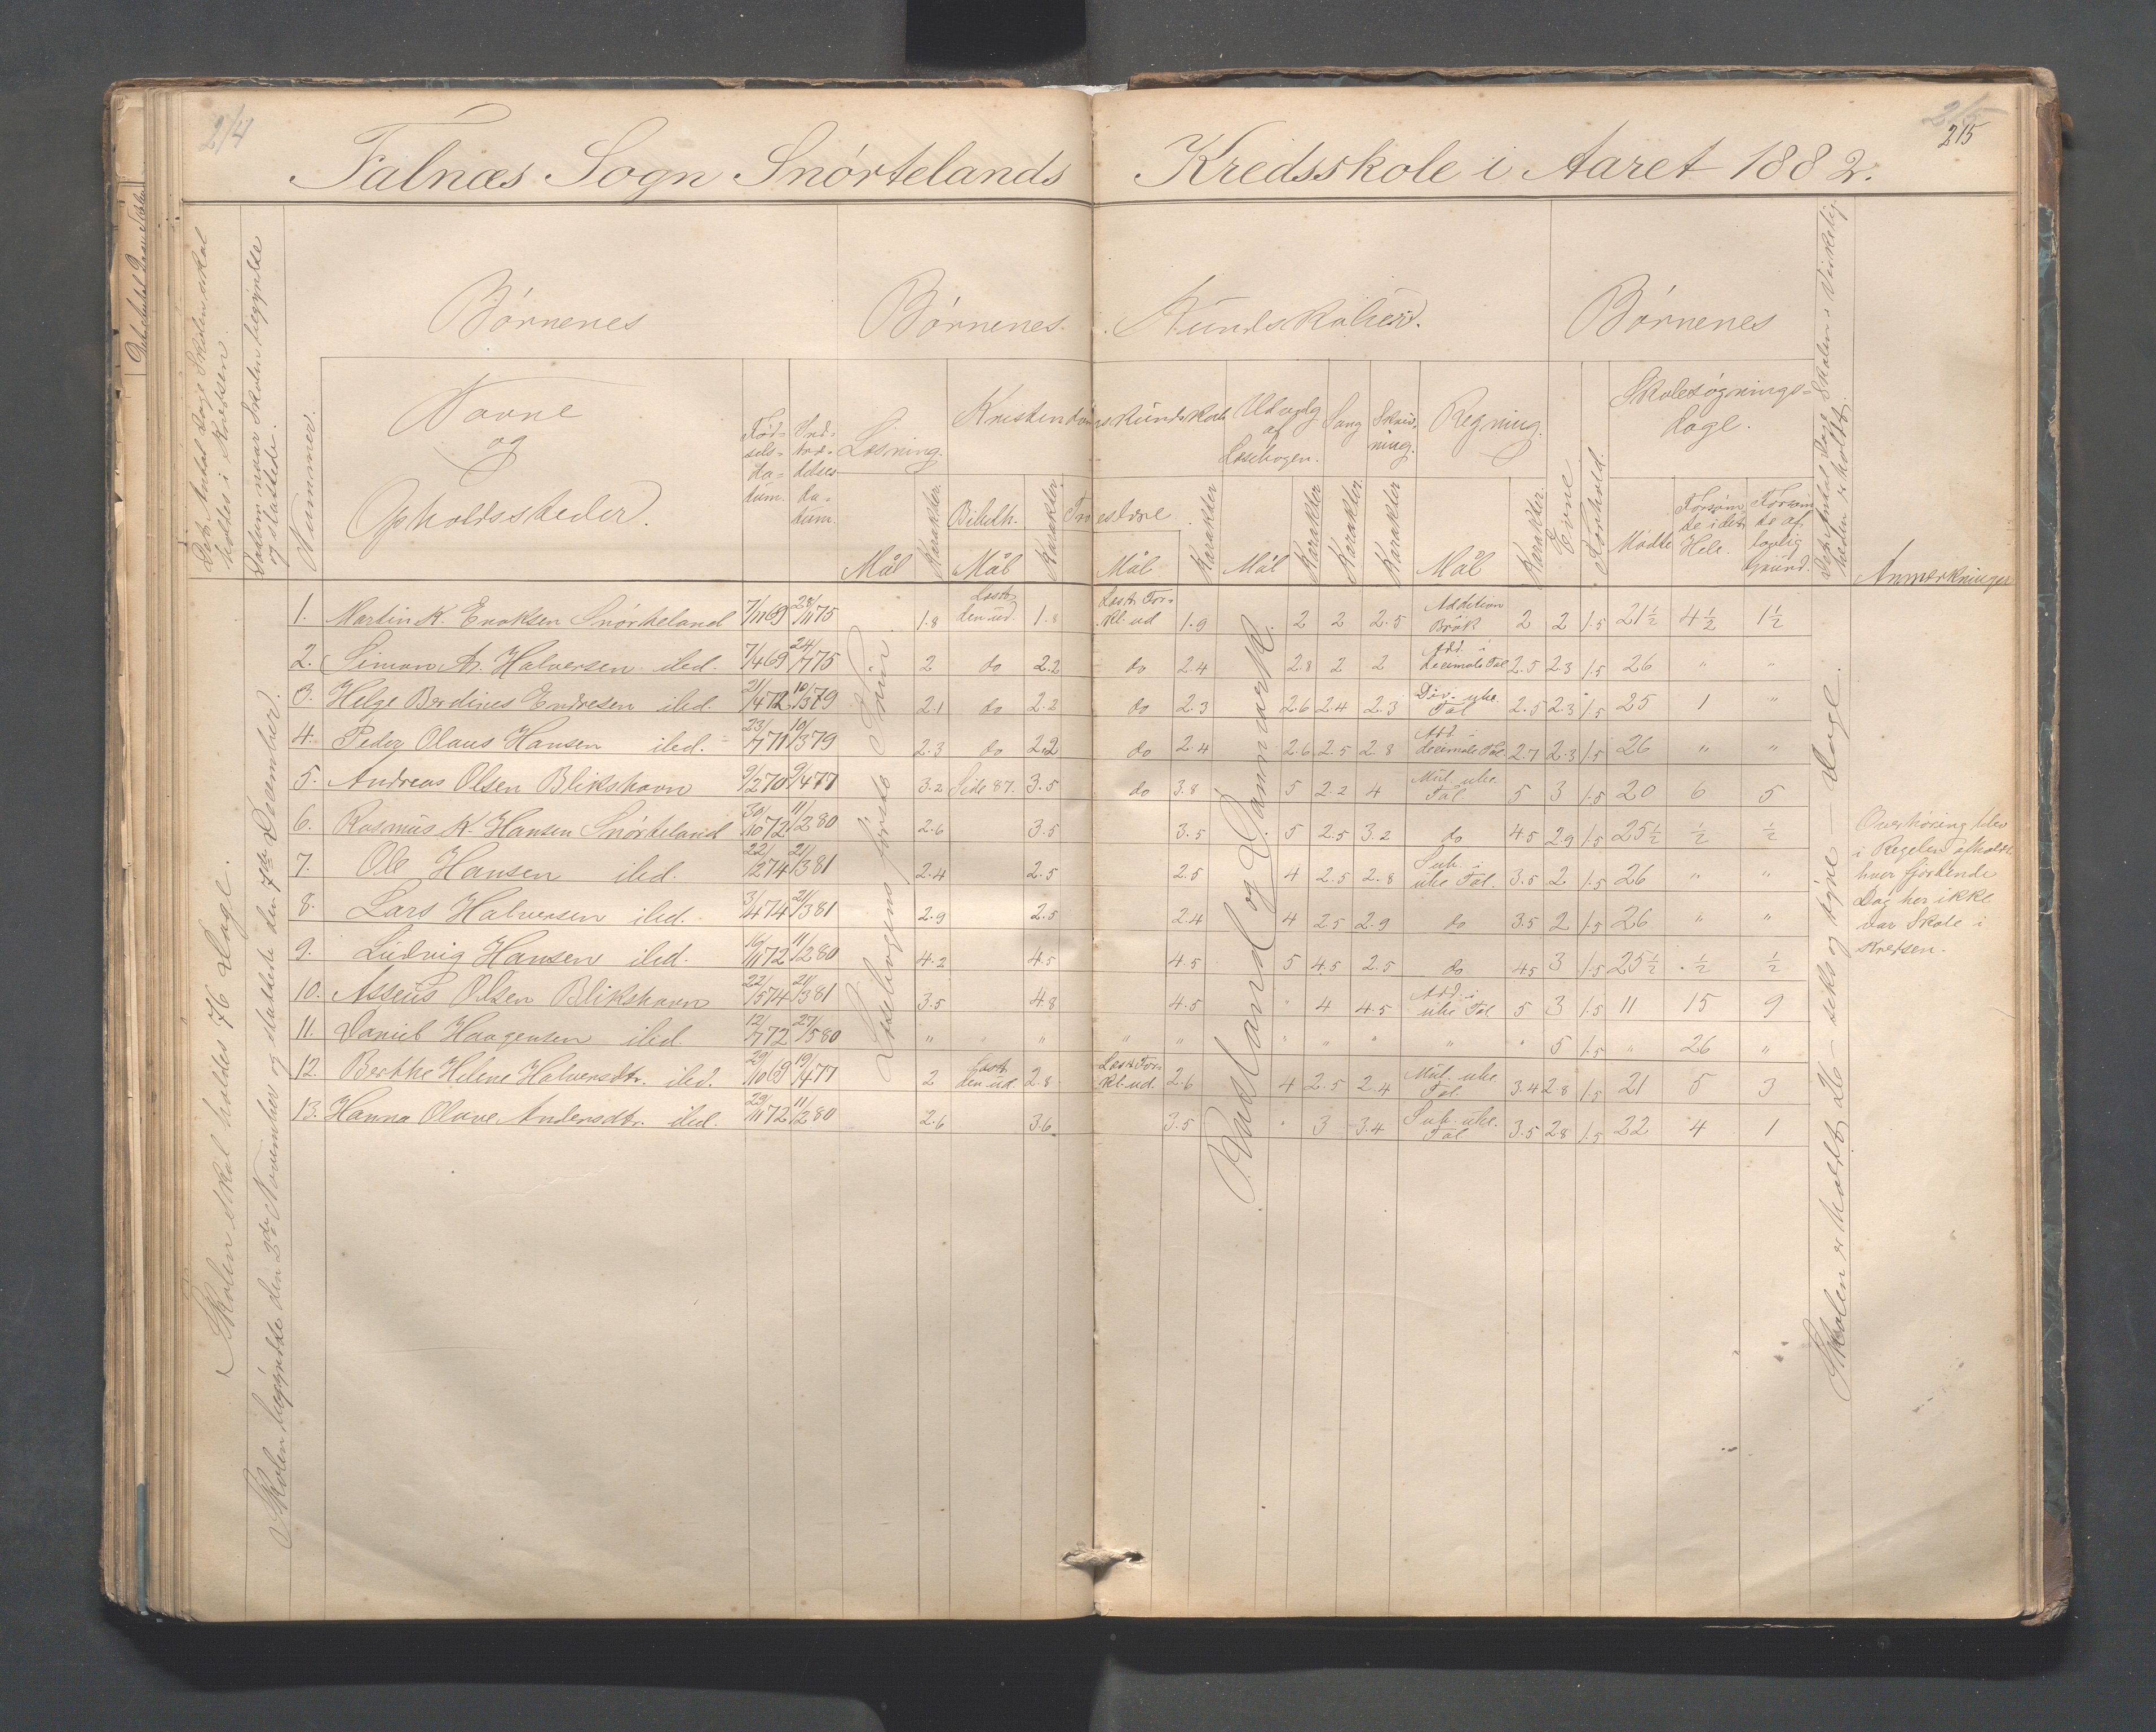 214
215
215
Falnæs Sogn Snørtelands Kredsskole i Aaret 1882.
Det Antal Dage Skolen skal
holdes i Kredsen.
Datum naar Skolen begyndte
og sluttede.
Nummer.
Børnenes
Navne
og
Opholdssteder.
Fød=
sels=
da=
tum.
Ind=
træ=
delses
da=
tum.
Børnenes Kundskaber.
Læsning.
Mål
Karakter.
Kristendomskundskab
Bibelh.
Mål
Karakter.
Troeslære
Mål
Karakter
Udvalg
af
Læsebogen.
Mål
Karakter
Sang
Karakter.
Skriv-
ning.
Karakter
Regning.
Mål
Karakter.
Børnenes
Evne
Forhold.
Skolesøgnings=
dage.
Mødte
Forsøm
te i det
Hele.
Forsøm
te af
lovlig
Grund.
Det Antal Dage Skolen i Virkelig
heden er holdt.
Anmærkninger
Skolen skal holdes 76 Dage.
Skolen begyndte den 3die November og sluttede den 7de December.
Læsebogens første Trin.
Rusland og Danmark.
Skolen er holdt 26 – seks og tyve – Dage.
1. Martin K. Enoksen Snørteland 7/11 69 28/11 75 1.8 Læst den ud. 1.8 Læst For- kl. ud 1.9 2 2 2.5 Addition Brøk 2 2 1.5 21½ 4½ 1½
2. Simon A. Halversen ibd. 7/4 69 24/7 75 2 do 2.2 do 2.4 2.8 2 2 Add. i decimale Tal 2.5 2.3 1.5 26 " "
3. Helge Berdines Endresen ibd. 21/4 72 10/3 79 2.1 do 2.2 do 2.3 2.6 2.4 2.3 Div. ube. Tal 2.5 2.3 1.5 25 1 "
4. Peder Olaus Hansen ibd. 23/7 71 10/3 79 2.3 do 2.2 do 2.4 2.6 2.5 2.8 Add. i decimale Tal 2.7 2.3 1.5 26 " "
5. Andreas Olsen Blikshavn 9/2 70 9/4 77 3.2 Side 87. 3.5 do 3.8 5 2.2 4 Mul. ube. Tal 5 3 1.5 20 6 5
6. Rasmus K. Hansen Snørteland 30/10 72 11/2 80 2.6 3.5 3.5 5 2.5 3.2 do 4.5 2.9 1.5 25½ ½ ½
7. Ole Hansen ibd. 22/2 74 21/3 81 2.4 2.5 2.5 4 2.5 2.8 Sub. i ube Tal. 3.5 2 1.5 26 " "
8. Lars Halversen ibd. 3/4 74 21/3 81 2.9 2.5 2.4 4 2.5 2.9 do 3.5 2 1.5 26 " "
9. Ludvig Hansen ibd. 16/11 72 11/2 80 4.2 4.5 4.5 5 4.5 2.5 do 4.5 3 1.5 25½ ½ ½
10. Asseus Olsen Blikshavn 22/5 74 21/3 81 3.5 4.8 4.5 " 4 4.5 Add. i ube Tal 5 3 1.5 11 15 9
11. Daniel Haagensen ibd. 12/7 72 27/5 80 " " " " " " " " " " " 5 1.5 " 26 "
12. Berthe Helene Halversdtr. ibd. 29/10 69 19/4 77 2 Læst den ud. 2.8 Læst For- kl. ud. 2.6 4 2.5 2.4 Mul. ube. Tal. 3.4 2.8 1.5 21 5 3
13. Hanna Olave Andersdtr. ibd. 29/11 72 11/2 80 2.6 3.6 3.5 " 3 3.4 Sub. ube. Tal 3.5 2.8 1.5 22 4 1
Overhøring blev
i Regelen afholdt
hver fjortende
Dag her ikke
var Skole i
Kredsen.